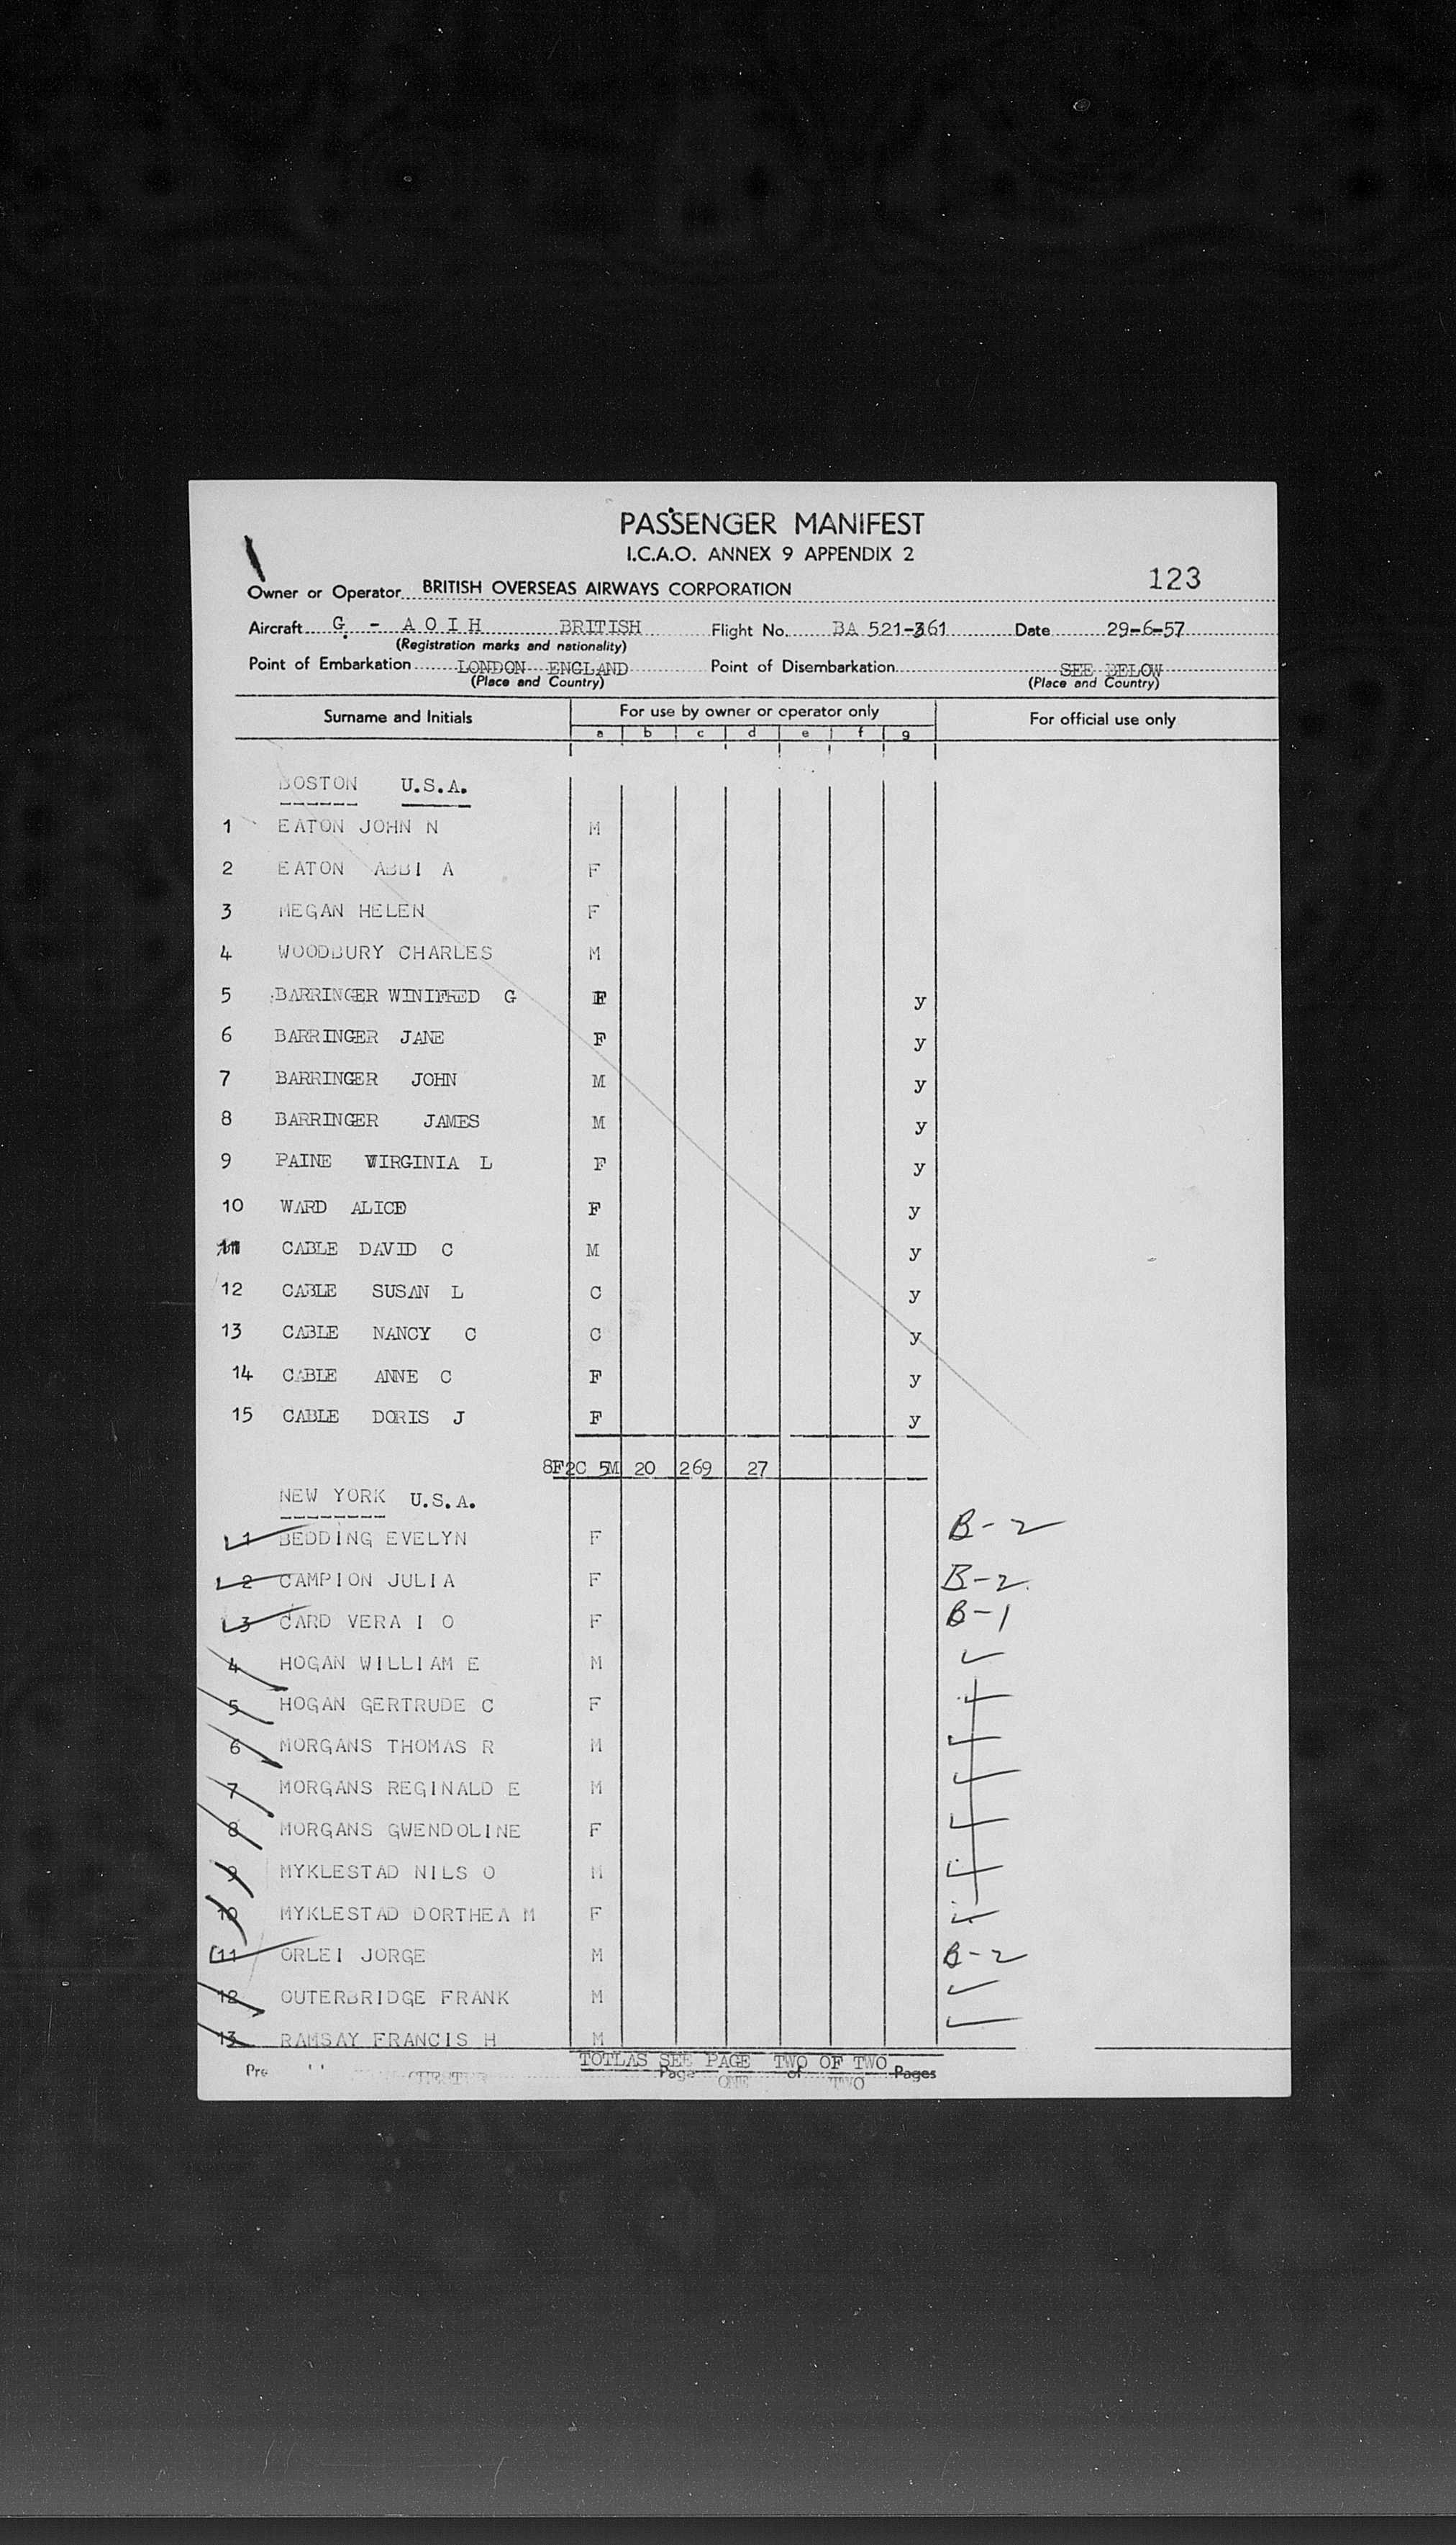 PASSENGER MANIFEST
I.C.A.O. ANNEX 9 APPENDIX 2
123
Owner or Operator BRITISH OVERSEAS AIRWAYS CORPORATION
Aircraft G. - A O I H BRITISH Flight No. BA 521-361 Date 29-6-57
(Registration marks and nationality)
Point of Embarkation LONDON ENGLAND Point of Disembarkation SEE BELOW
(Place and Country) (Place and Country)
Surname and Initials For use by owner or operator only For official use only
a b c d e f g
BOSTON U.S.A.
1 EATON JOHN N M
2 EATON ABBI A F
3 MEGAN HELEN F
4 WOODBURY CHARLES M
5 BARRINGER WINIFRED G F y
6 BARRINGER JANE F y
7 BARRINGER JOHN M y
8 BARRINGER JAMES M y
9 PAINE VIRGINIA L F y
10 WARD ALICE F y
11 CABLE DAVID C M y
12 CABLE SUSAN L C y
13 CABLE NANCY C C y
14 CABLE ANNE C F y
15 CABLE DORIS J F y
8F2C 5M 20 269 27
NEW YORK U.S.A.
1 BEDDING EVELYN F B-2
2 CAMPION JULIA F B-2
3 CARD VERA I O F B-1
4 HOGAN WILLIAM E M ✓
5 HOGAN GERTRUDE C F ✓
6 MORGANS THOMAS R M ✓
7 MORGANS REGINALD E M ✓
8 MORGANS GWENDOLINE F ✓
9 MYKLESTAD NILS O M ✓
10 MYKLESTAD DORTHEA M F ✓
11 ORLEI JORGE M B-2
12 OUTERBRIDGE FRANK M ✓
13 RAMSAY FRANCIS H M ✓
TOTLAS SEE PAGE TWO OF TWO
Pre Page ONE of TWO Pages